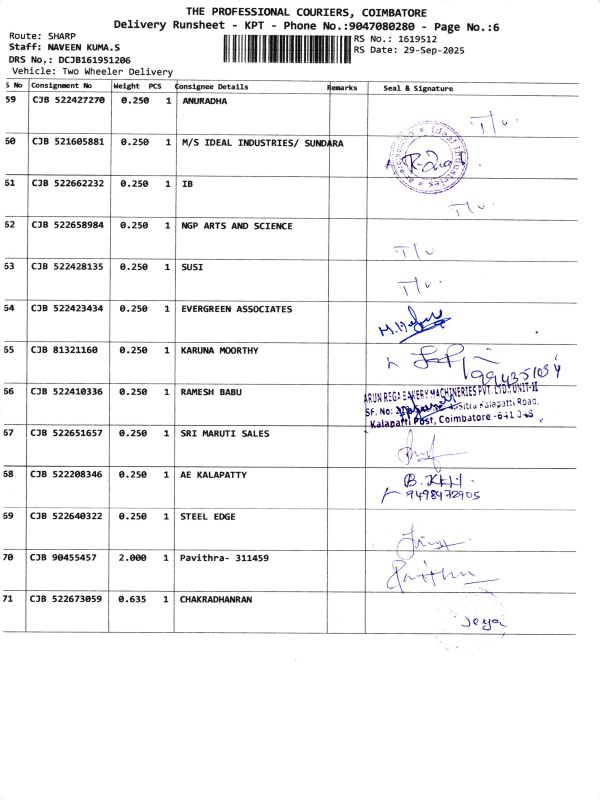 THE PROFESSIONAL COURIERS, COIMBATORE
Delivery Runsheet - KPT - Phone No.:9047080280 - Page No.:6
Route: SHARP
RS No.: 1619512
Staff: NAVEEN KUMA.S
RS Date: 29-Sep-2025
DRS No,: DCJB161951206
Vehicle: Two Wheeler Delivery
S No Consignment No Weight PCS Consignee Details Remarks Seal & Signature
59 CJB 522427270 0.250 1 ANURADHA
60 CJB 521605881 0.250 1 M/S IDEAL INDUSTRIES/ SUNDARA
61 CJB 522662232 0.250 1 IB
62 CJB 522658984 0.250 1 NGP ARTS AND SCIENCE
63 CJB 522428135 0.250 1 SUSI
64 CJB 522423434 0.250 1 EVERGREEN ASSOCIATES
65 CJB 81321160 0.250 1 KARUNA MOORTHY
9943551054
66 CJB 522410336 0.250 1 RAMESH BABU
ARUN REGA BAKERY MACHINERIES PVT. LTD., UNIT-II
SF. No: Sitra Kalapatti Road,
Kalapatti Post, Coimbatore -641 048
67 CJB 522651657 0.250 1 SRI MARUTI SALES
68 CJB 522208346 0.250 1 AE KALAPATTY
9498472905
69 CJB 522640322 0.250 1 STEEL EDGE
70 CJB 90455457 2.000 1 Pavithra- 311459
Pavithra
71 CJB 522673059 0.635 1 CHAKRADHANRAN
Jeya